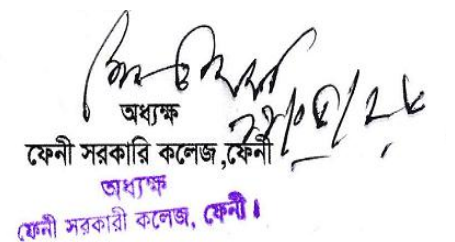 অধ্যক্ষ
ফেনী সরকারি কলেজ,ফেনী
অধ্যক্ষ
ফেনী সরকারী কলেজ, ফেনী।